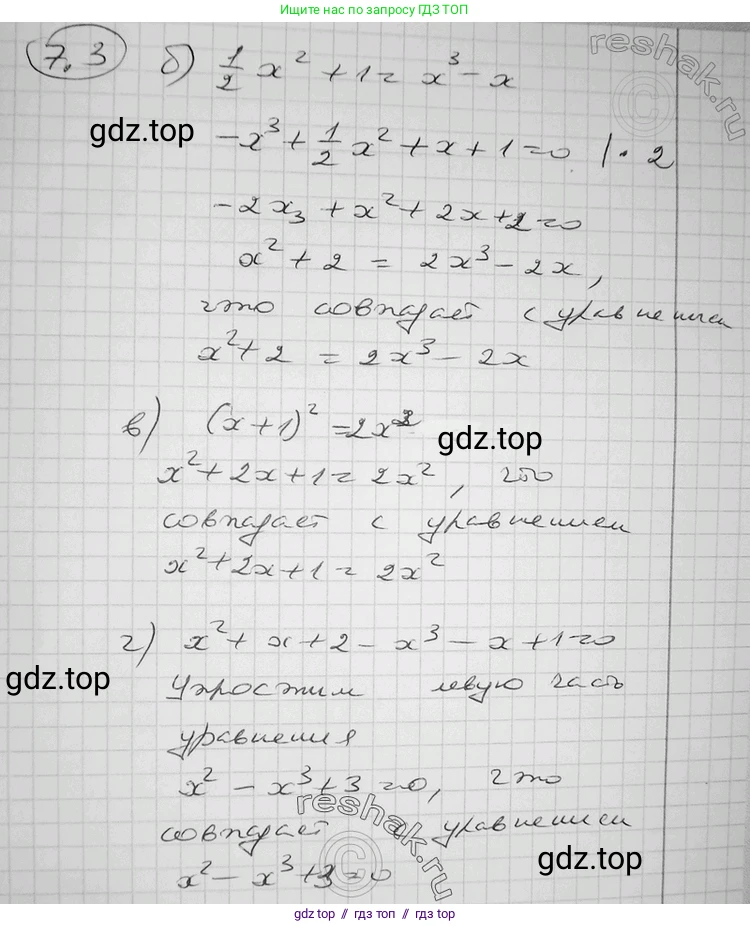 Ищите нас по запросу ГДЗ ТОП
7.3 б) 1/2 x² + 1 = x³ - x
reshak.ru
gdz.top
-x³ + 1/2 x² + x + 1 = 0 | · 2
-2x₃ + x² + 2x + 2 = 0
x² + 2 = 2x³ - 2x,
что совпадает с уравнением
x² + 2 = 2x³ - 2x
в) (x + 1)² = 2x²
gdz.top
x² + 2x + 1 = 2x², что
совпадает с уравнением
x² + 2x + 1 = 2x²
г) x² + x + 2 - x³ - x + 1 = 0
gdz.top
Упростим левую часть
уравнения
x² - x³ + 3 = 0, что
reshak.ru
совпадает с уравнением
gdz.top
x² - x³ + 3 = 0
gdz.top // gdz.top // gdz.top